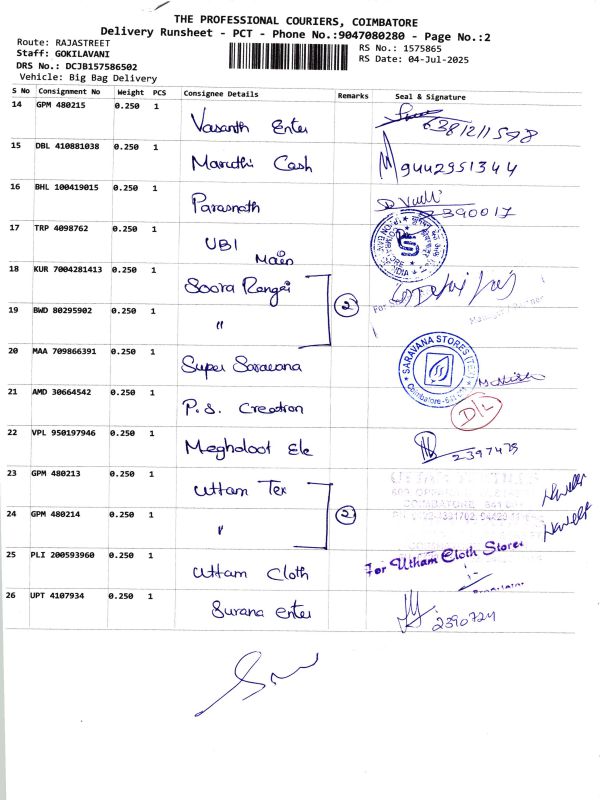 THE PROFESSIONAL COURIERS, COIMBATORE
Delivery Runsheet - PCT - Phone No.:9047080280 - Page No.:2
Route: RAJASTREET
Staff: GOKILAVANI
DRS No.: DCJB157586502
Vehicle: Big Bag Delivery
RS No.: 1575865
RS Date: 04-Jul-2025
S No Consignment No Weight PCS Consignee Details Remarks Seal & Signature
14 GPM 480215 0.250 1 Vasanth Enter 6381211598
15 DBL 410881038 0.250 1 Maruthi Cash 9442951344
16 BHL 100419015 0.250 1 Parasnath 2390017
17 TRP 4098762 0.250 1 UBI Main
18 KUR 7004281413 0.250 1 Soora Rangai 2
19 BWD 80295902 0.250 1 "
20 MAA 709866391 0.250 1 Super Saravana SARAVANA STORES (TEX)
21 AMD 30664542 0.250 1 P.S. Creation D/L
22 VPL 950197946 0.250 1 Meghdoot Ele 2397475
23 GPM 480213 0.250 1 Uttam Tex 2
24 GPM 480214 0.250 1 "
25 PLI 200593960 0.250 1 Uttam Cloth For Utham Cloth Stores
26 UPT 4107934 0.250 1 Surana Enter 2390724